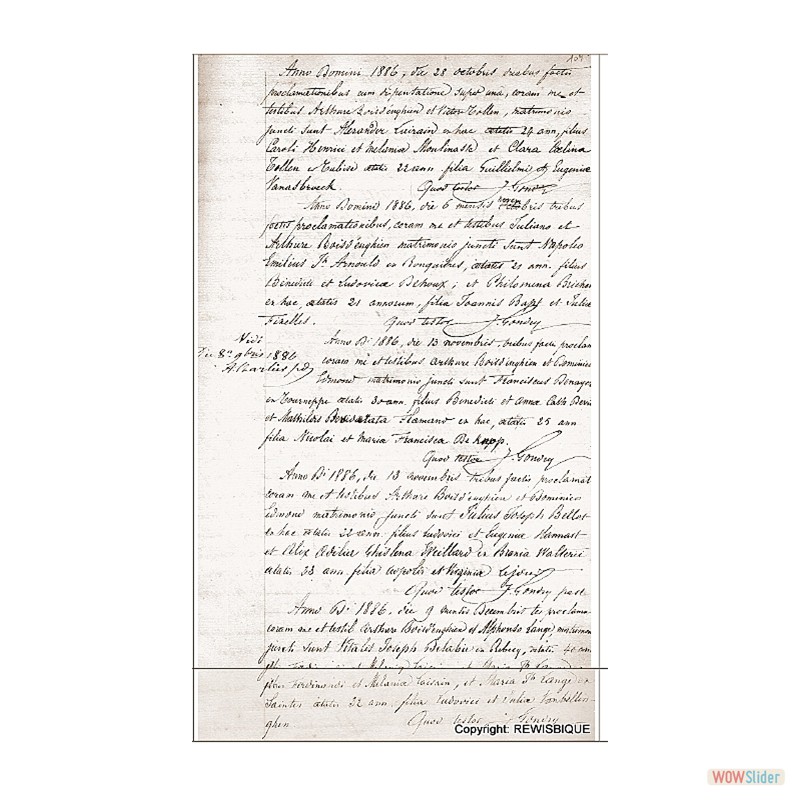 Anno Domini 1886, die 28 octobris duabus factis
proclamationibus cum dispentatione super una, coram me et
testibus Arthure Boisdenghien et Victor Tollen, matrimonio
juncti sunt Alexander Cuisain ex hac aetatis 24 ann, filius
Caroli Henrici et Melania Moulinask et Clara Coelina
Tollen ex Tubise aetatis 22 ann filia Guillielmi et Eugeniae
Vanasbroeck. Quod testor J. Gondry
Anno Domini 1886, die 6 mensis novembris tribus
factis proclamationibus, coram me et testibus Juliano et
Arthure Boisd'enghien matrimonio juncti sunt Napoleo
Emilius Jh Arnould ex Ronquières, aetatis 21 ann. filius
Benedicti et Ludovica Dehoux; et Philomena Brichot
ex hac, aetatis 21 annorum, filia Joannis Bapt et Julia
Fixelles. Quod testor J. Gondry
Vidi
die 8a 9bris 1886
A. Charlier
Anno Di 1886, die 13 novembris, tribus factis proclam
coram me et testibus Arthure Boisd'enghien et Dominico
Edmond matrimonio juncti sunt Franciscus Benayer
ex Tourneppe aetatis 30 ann. filius Benedicti et Anna Cath
et Mathildis Flamand ex hac, aetatis 25 ann
filia Nicolai et Maria Francisca De Knopp.
Quod testor J. Gondry
Anno Di 1886, die 13 novembris tribus factis proclamat
coram me et testibus Arthure Boisd'enghien et Dominico
Edmond matrimonio juncti sunt Julius Joseph Bellot
ex hac aetatis 22 ann. filius Ludovici et Eugenia Hannast
et Alix Odilie Ghislena Weillard ex Brania Wallerii
aetatis 33 ann. filia Leopoldi et Virginia
Quod testor J. Gondry past
Anno Di 1886, die 9 mensis Decembris proclama
coram me et testib Arthure Boisd'enghien et Alphonso Lange, matrimon
juncti sunt Vitalis Joseph Delabie ex Rebecq, aetatis 40 ann
filius Ferdinandi et Melania Cuisain, et Maria Th Lange ex
Saintes aetatis 32 ann. filia Ludovici et Julia Vanbellen
ghen. Quod testor J Gondry
Copyright: REWISBIQUE
WOWSlider